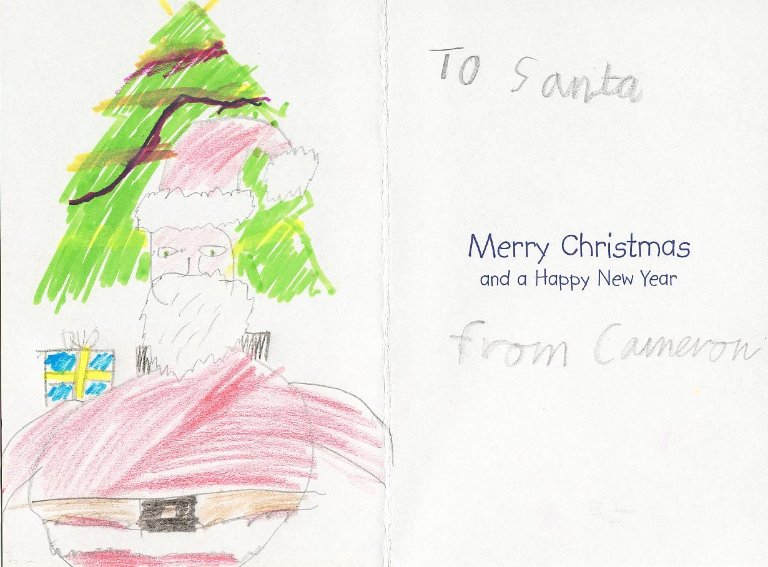 To Santa
Merry Christmas
and a Happy New Year
From Cameron